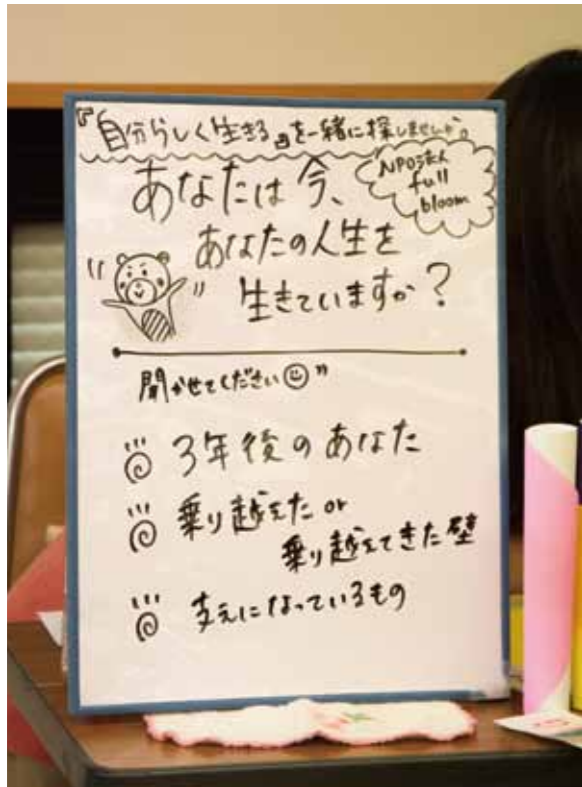 『自分らしく生きる』を一緒に探しませんか。
NPO法人
full
bloom
あなたは今、
あなたの人生を
生きていますか？
聞かせてください☺"
3年後のあなた
乗り越えた or
乗り越えてきた壁
支えになっているもの